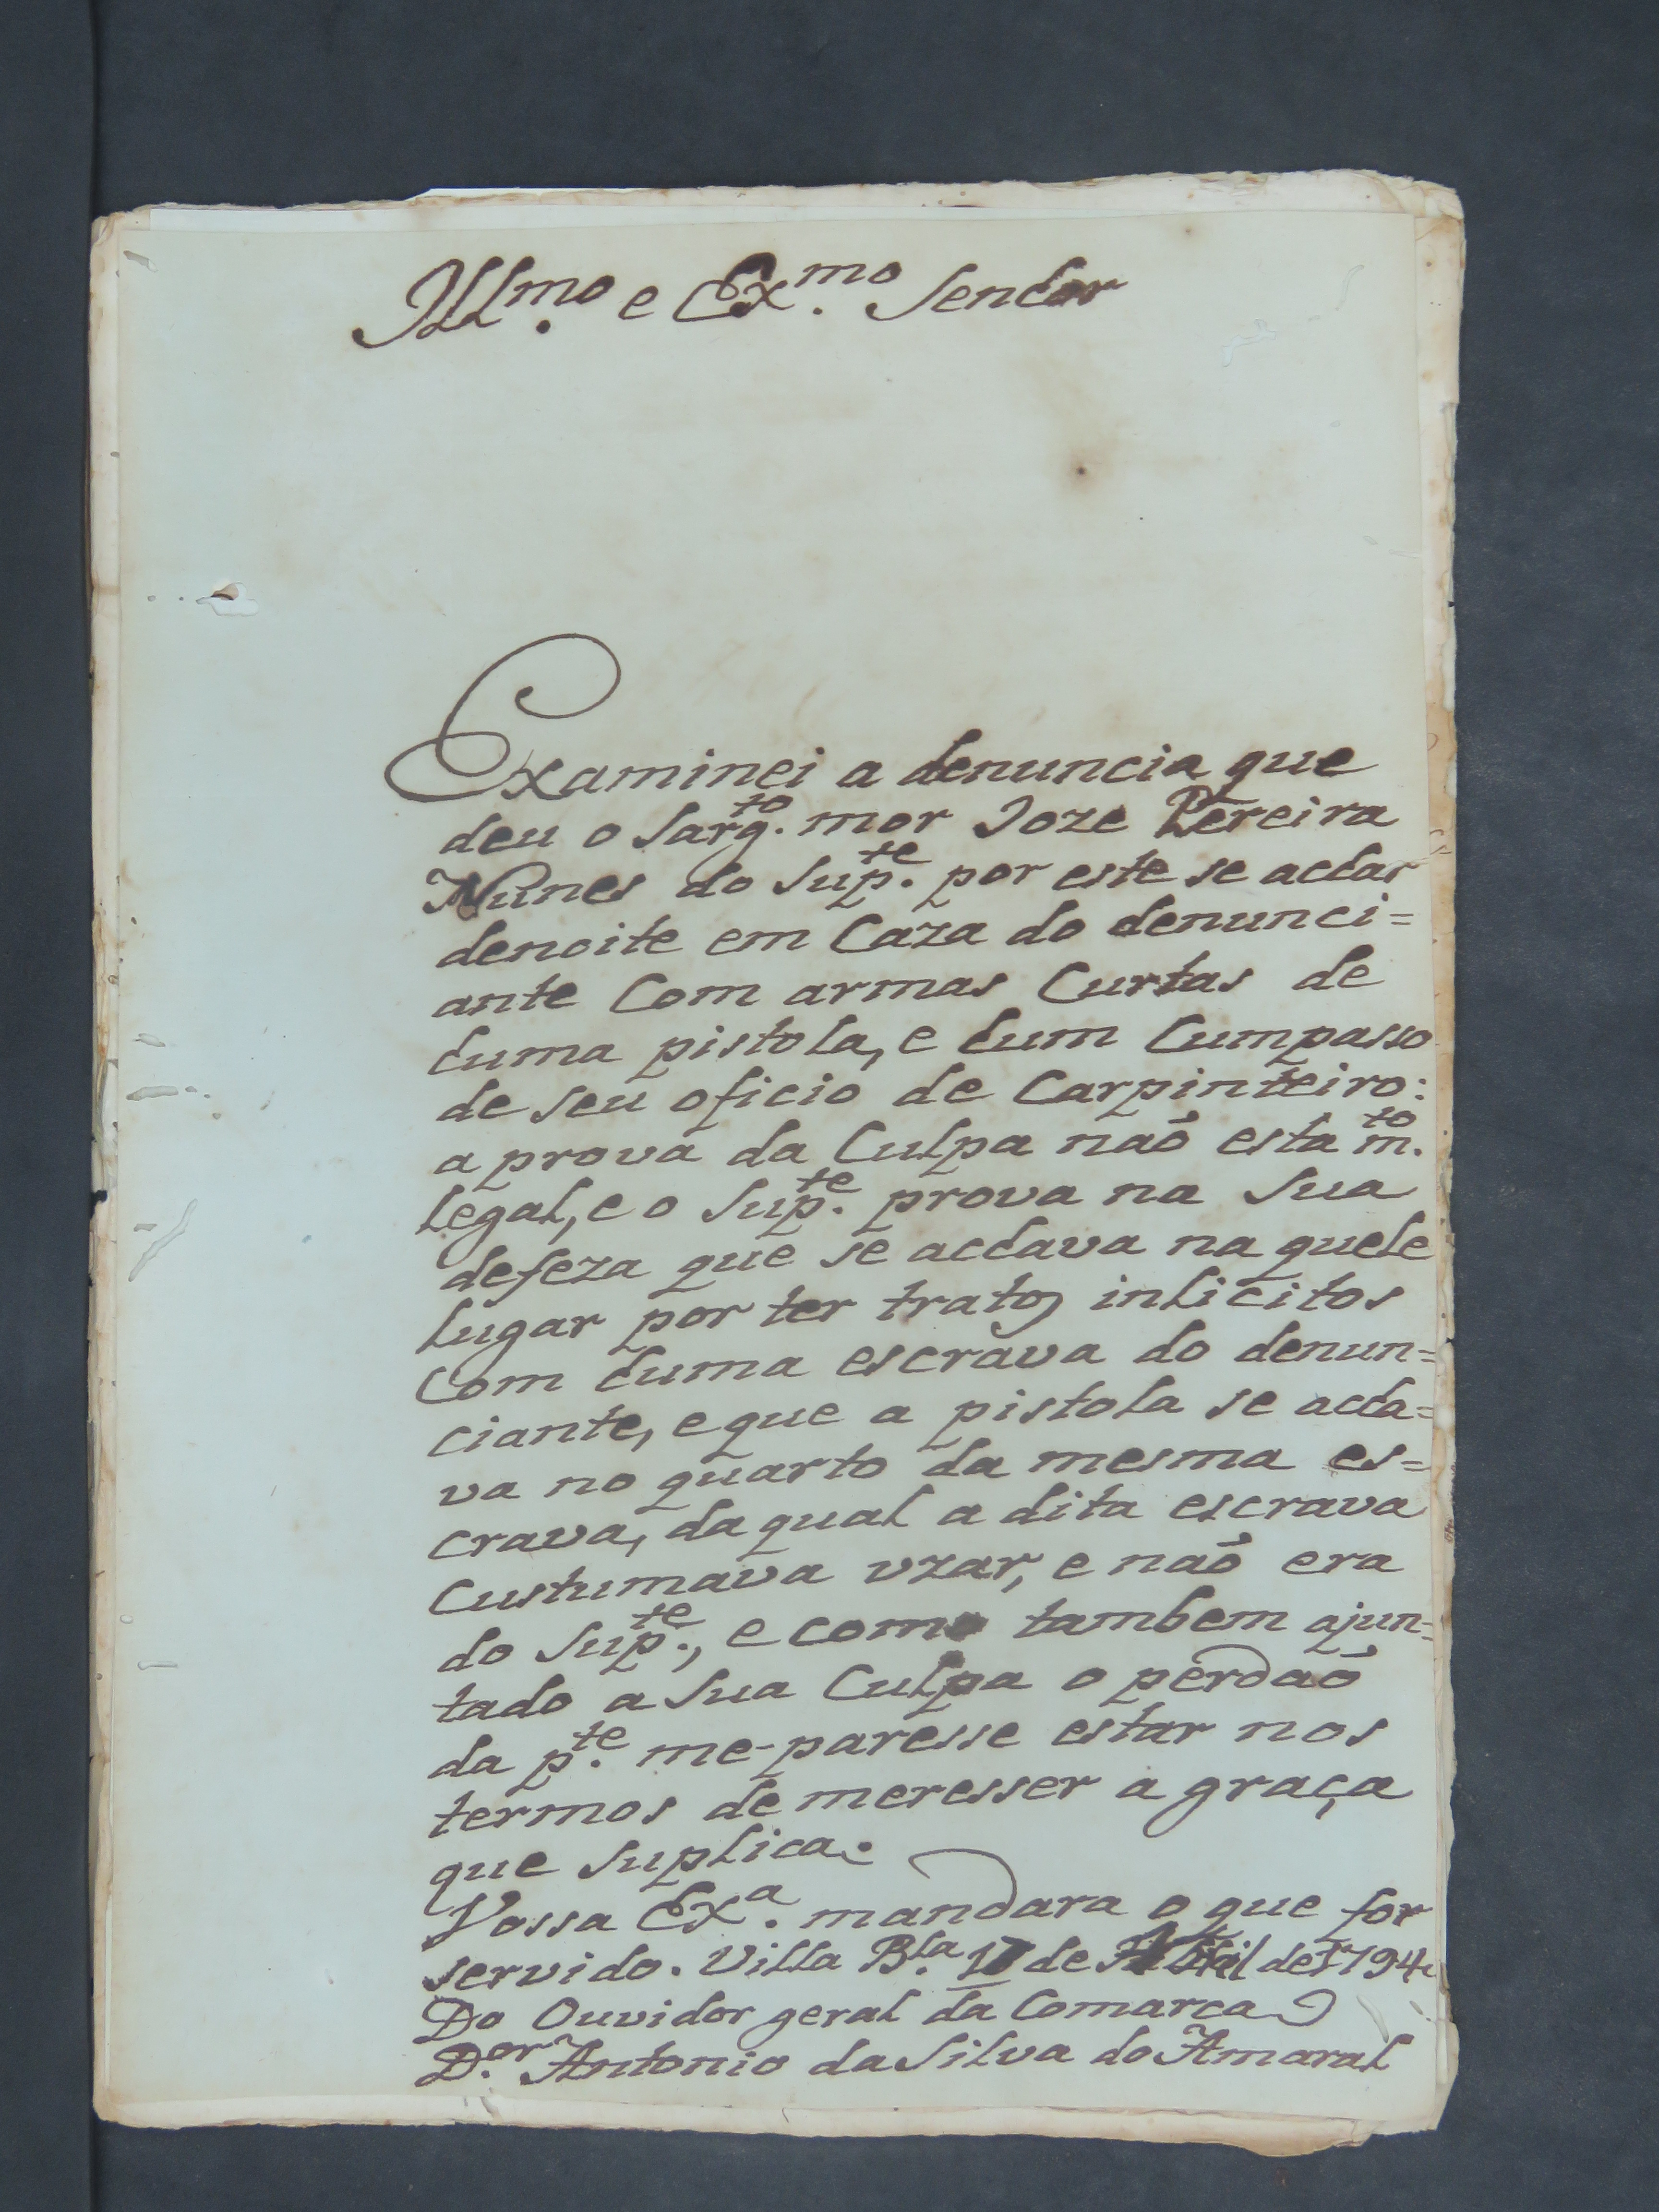 Ill.mo e Ex.mo Senhor
Examinei a denuncia que
deu o Sarg.to mor Joze Pereira
Nunes do Sup.te por este se achar
denoite em Caza do denunci=
ante Com armas Curtas de
huma pistola, e hum Cumpasso
de seu oficio de Carpinteiro:
a prova da Culpa naõ esta m.to
legal, e o Sup.te prova na Sua
defeza que se achava na quele
lugar por ter tratos inlicitos
Com huma escrava do denun=
ciante, e que a pistola se acha=
va no quarto da mesma es=
crava, da qual a dita escrava
Custumava vzar, e naõ era
do Sup.te, e como tambem ajun=
tado a Sua Culpa o perdaõ
da p.te me-paresse estar nos
termos de meresser a graça
que Suplica.
Vossa Ex.a mandara o que for
servido. Villa B.la de Abril de 1794
Do Ouvidor geral da Comarca
D.or Antonio da Silva do Amaral